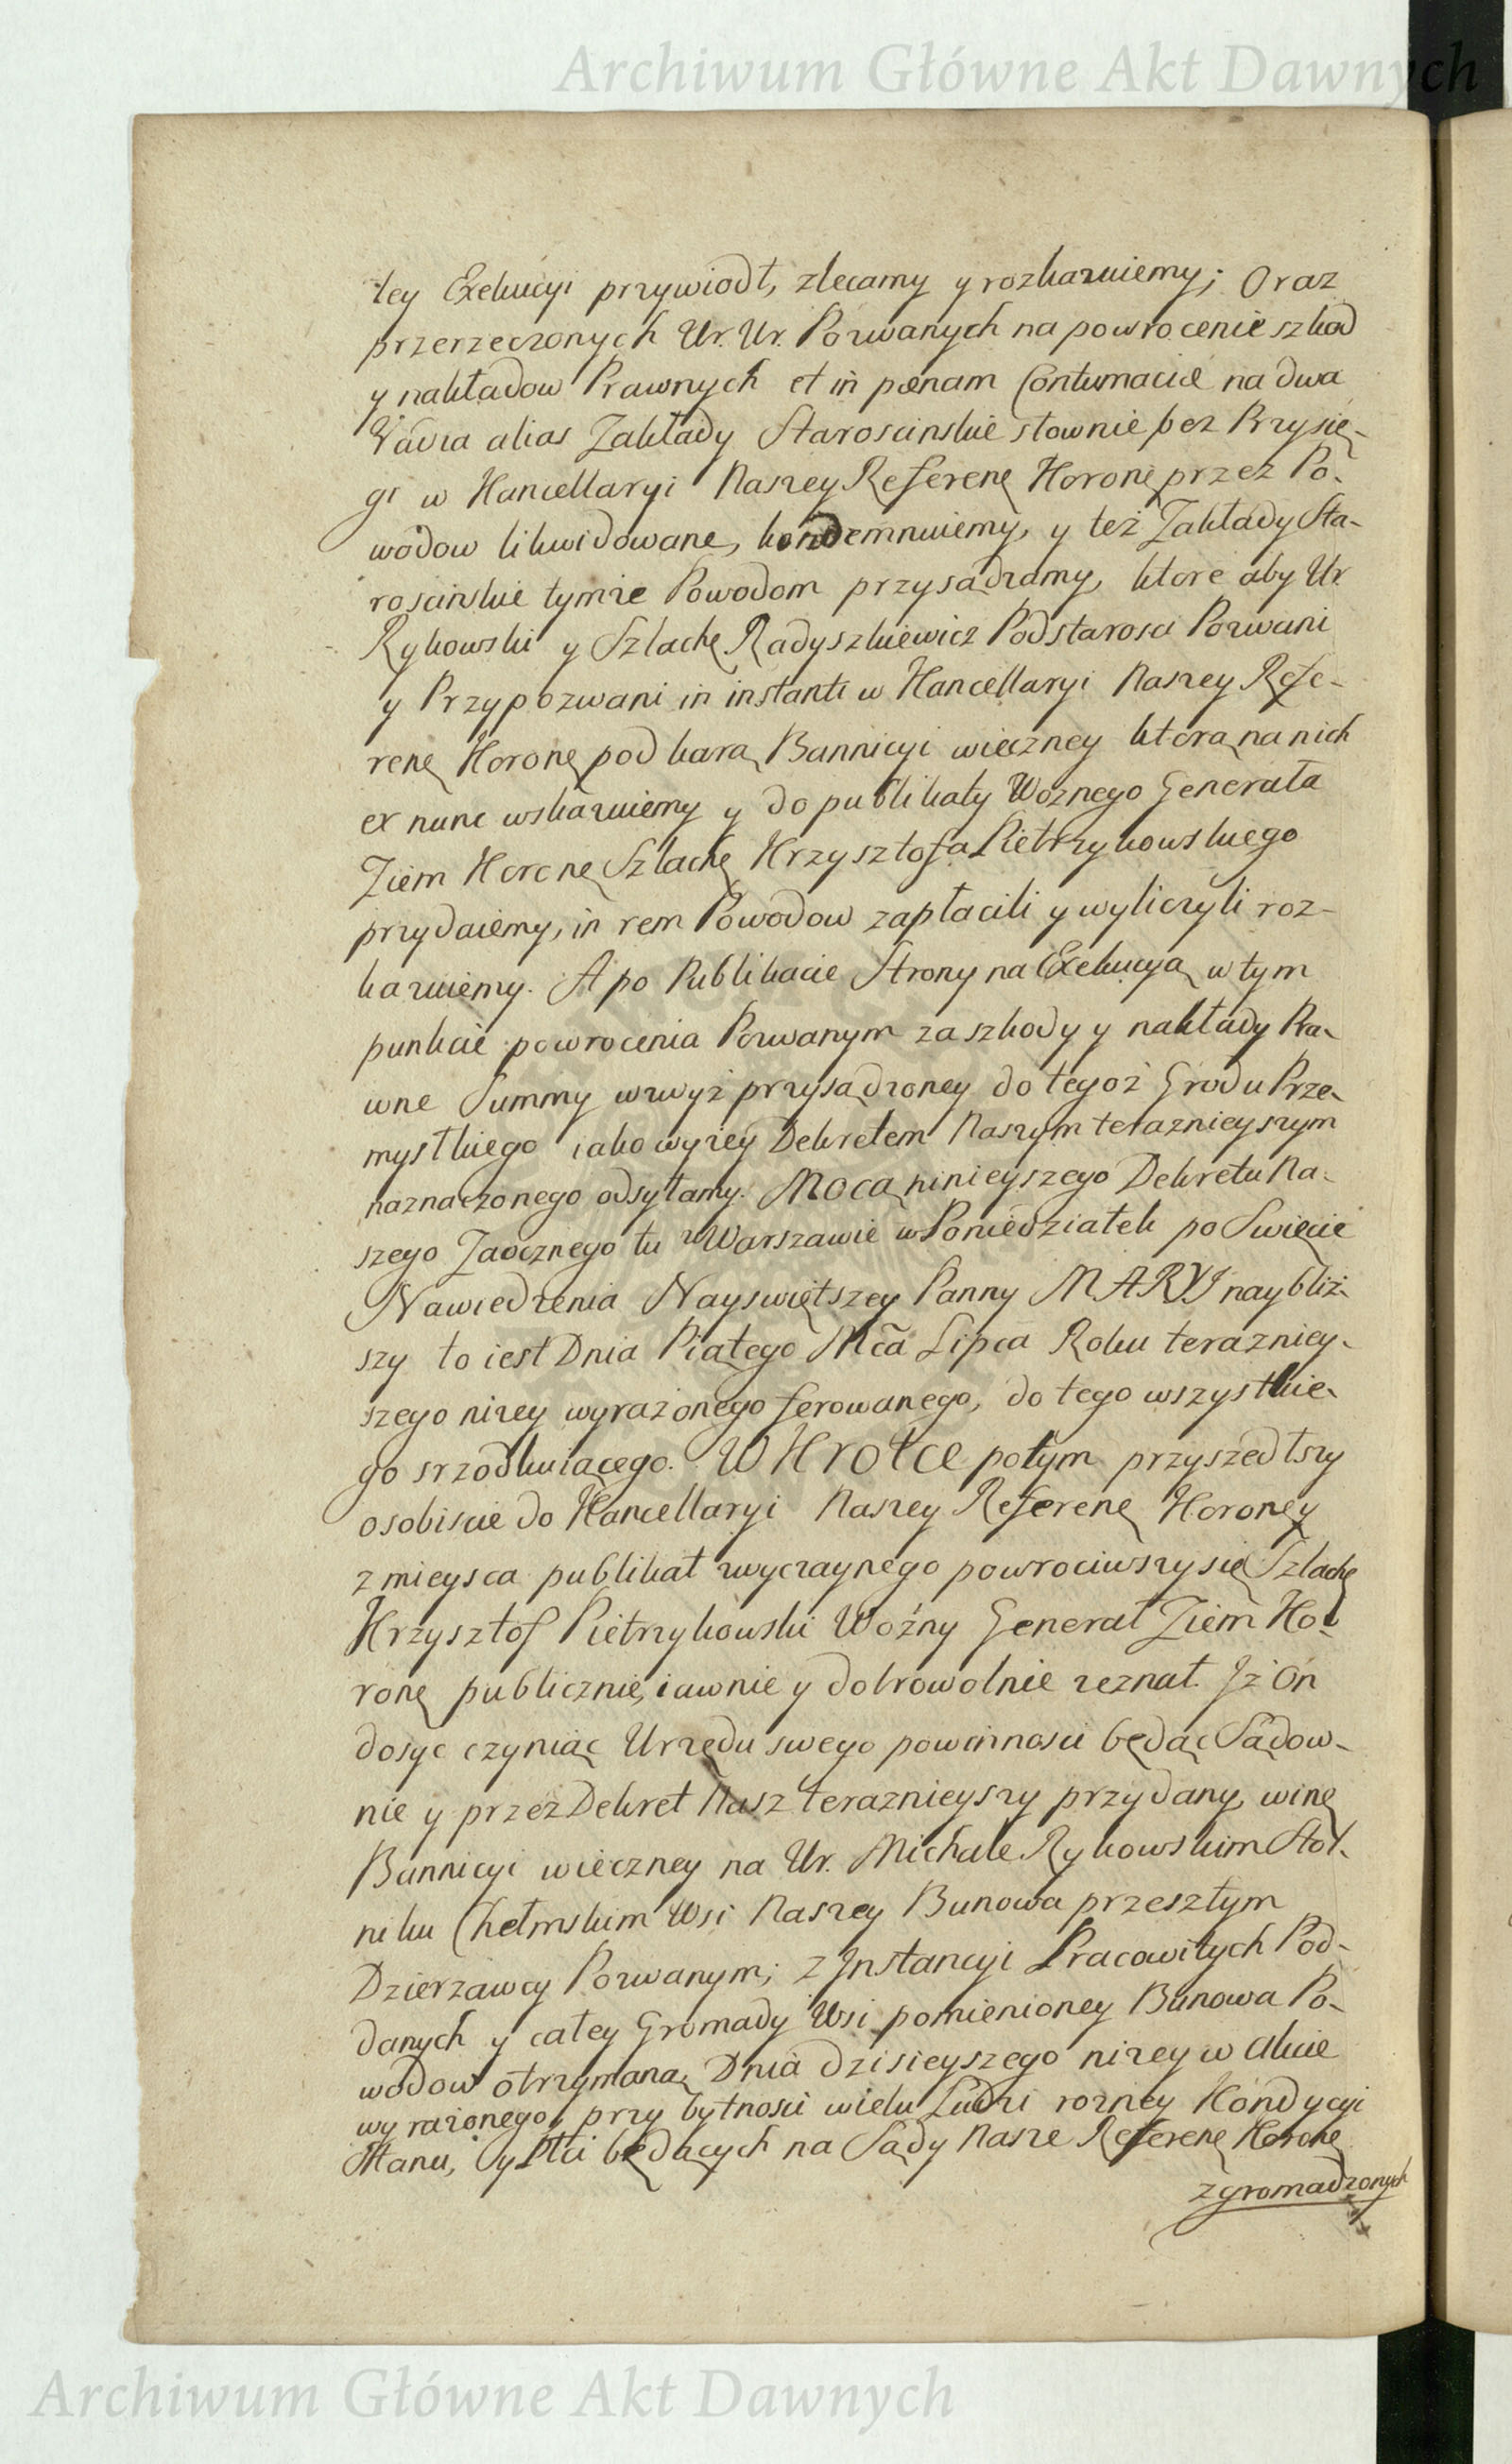 Archiwum Główne Akt Dawnych
tey Exekucyi przywiodł, zlecamy y rozkazuiemy; Oraz
przerzeczonych Ur. Ur. Pozwanych na powrocenie szkod
y nakładow Prawnych et in pœnam Contumaciæ na dwa
Vadia alias Zakłady Staroscinskie słownie bez Przysię-
gi w Kancellaryi Naszey Referenę Koronę przez Po-
wodow likwidowane, kondemnuiemy, y też Zakłady Sta-
roscinskie tymże Powodom przysądzamy, ktore aby Ur.
Rykowski y Szlachę Radyszkiewicz Podstarosci Pozwani
y Przypozwani in instanti w Kancellaryi Naszey Refe-
renę Koronę pod karą Bannicyi wieczney ktorą na nich
ex nunc wskazuiemy y do publikaty Woznego Generała
Ziem Koronę Szlachę Krzysztofa Pietrzykowskiego
przydaiemy, in rem Powodow zapłacili y wyliczyli roz-
kazuiemy. A po Publikacie Strony na Exekucyą w tym
punkcie powrocenia Pozwanym za szkody y nakłady Pra-
wne Summy wzwyż przysądzoney do tegoż Grodu Prze-
myslkiego iako wyżey Dekretem Naszym teraznieyszym
naznaczonego odsyłamy. Mocą ninieyszego Dekretu Na-
szego Zaocznego tu w Warszawie w Poniedziałek po Swięcie
Nawiedzenia Nayswiętszey Panny MARYI naybliż-
szy to iest Dnia Piątego Mca Lipca Roku terazniey-
szego niżey wyrażonego ferowanego, do tego wszystkie-
go srzodkuiącego. W Krotce potym przyszedłszy
osobiscie do Kancellaryi Naszey Referenę Koroney
z mieysca publikat zwyczaynego powrociwszy się Szlachę
Krzysztof Pietrzykowski Woźny Generał Ziem Ko-
ronę publicznie, iawnie y dobrowolnie zeznał. Iż On
dosyc czyniąc Urzędu swego powinnosci będąc Sądow-
nie y przez Dekret Nasz teraznieyszy przydany, winę
Bannicyi wieczney na Ur. Michale Rykowskim Stol-
niku Chełmskim Wsi Naszey Bunowa przeszłym
Dzierzawcy Pozwanym; z Instancyi Pracowitych Pod-
danych y całey Gromady Wsi pomienioney Bunowa Po-
wodow otrzymaną Dnia dzisieyszego niżey w Akcie
wyrażonego, przy bytnosci wielu Ludzi rozney Kondycyi
Stanu, y Płci będących na Sądy Nasze Referenę Koronę
zgromadzonych
Archiwum Główne Akt Dawnych